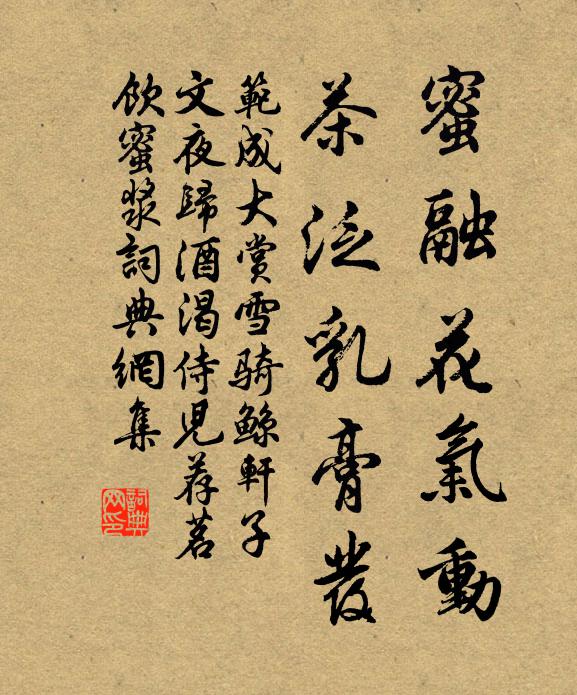 蜜融花氣動
茶泛乳膏發
範成大賞雪骑鲸軒子
文夜歸酒渴侍児荐茗
飲蜜漿詞典網集
詞典
网印